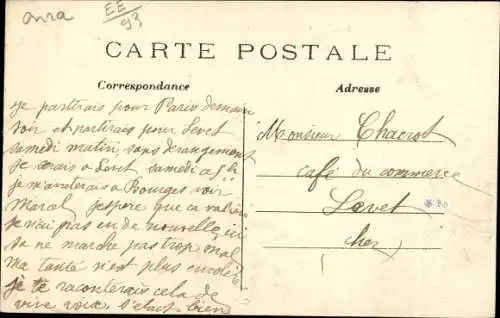 EE
93
CARTE POSTALE
Correspondance
Adresse
je partirais pour Paris demain
soir et partirais pour Levet
samedi matin, sans dérangement
je serais à Levet samedi a 5h
je m'arreterais à Bourges voir
Marcel j'espère que ca va bien
je n'ai pas eu de nouvelle, ici
sa ne marche pas trop mal
ma tante n'est plus
je te raconterais cela de
vive voix. c'etait bien
Monsieur Chacrot
café du commerce
Levet
Cher